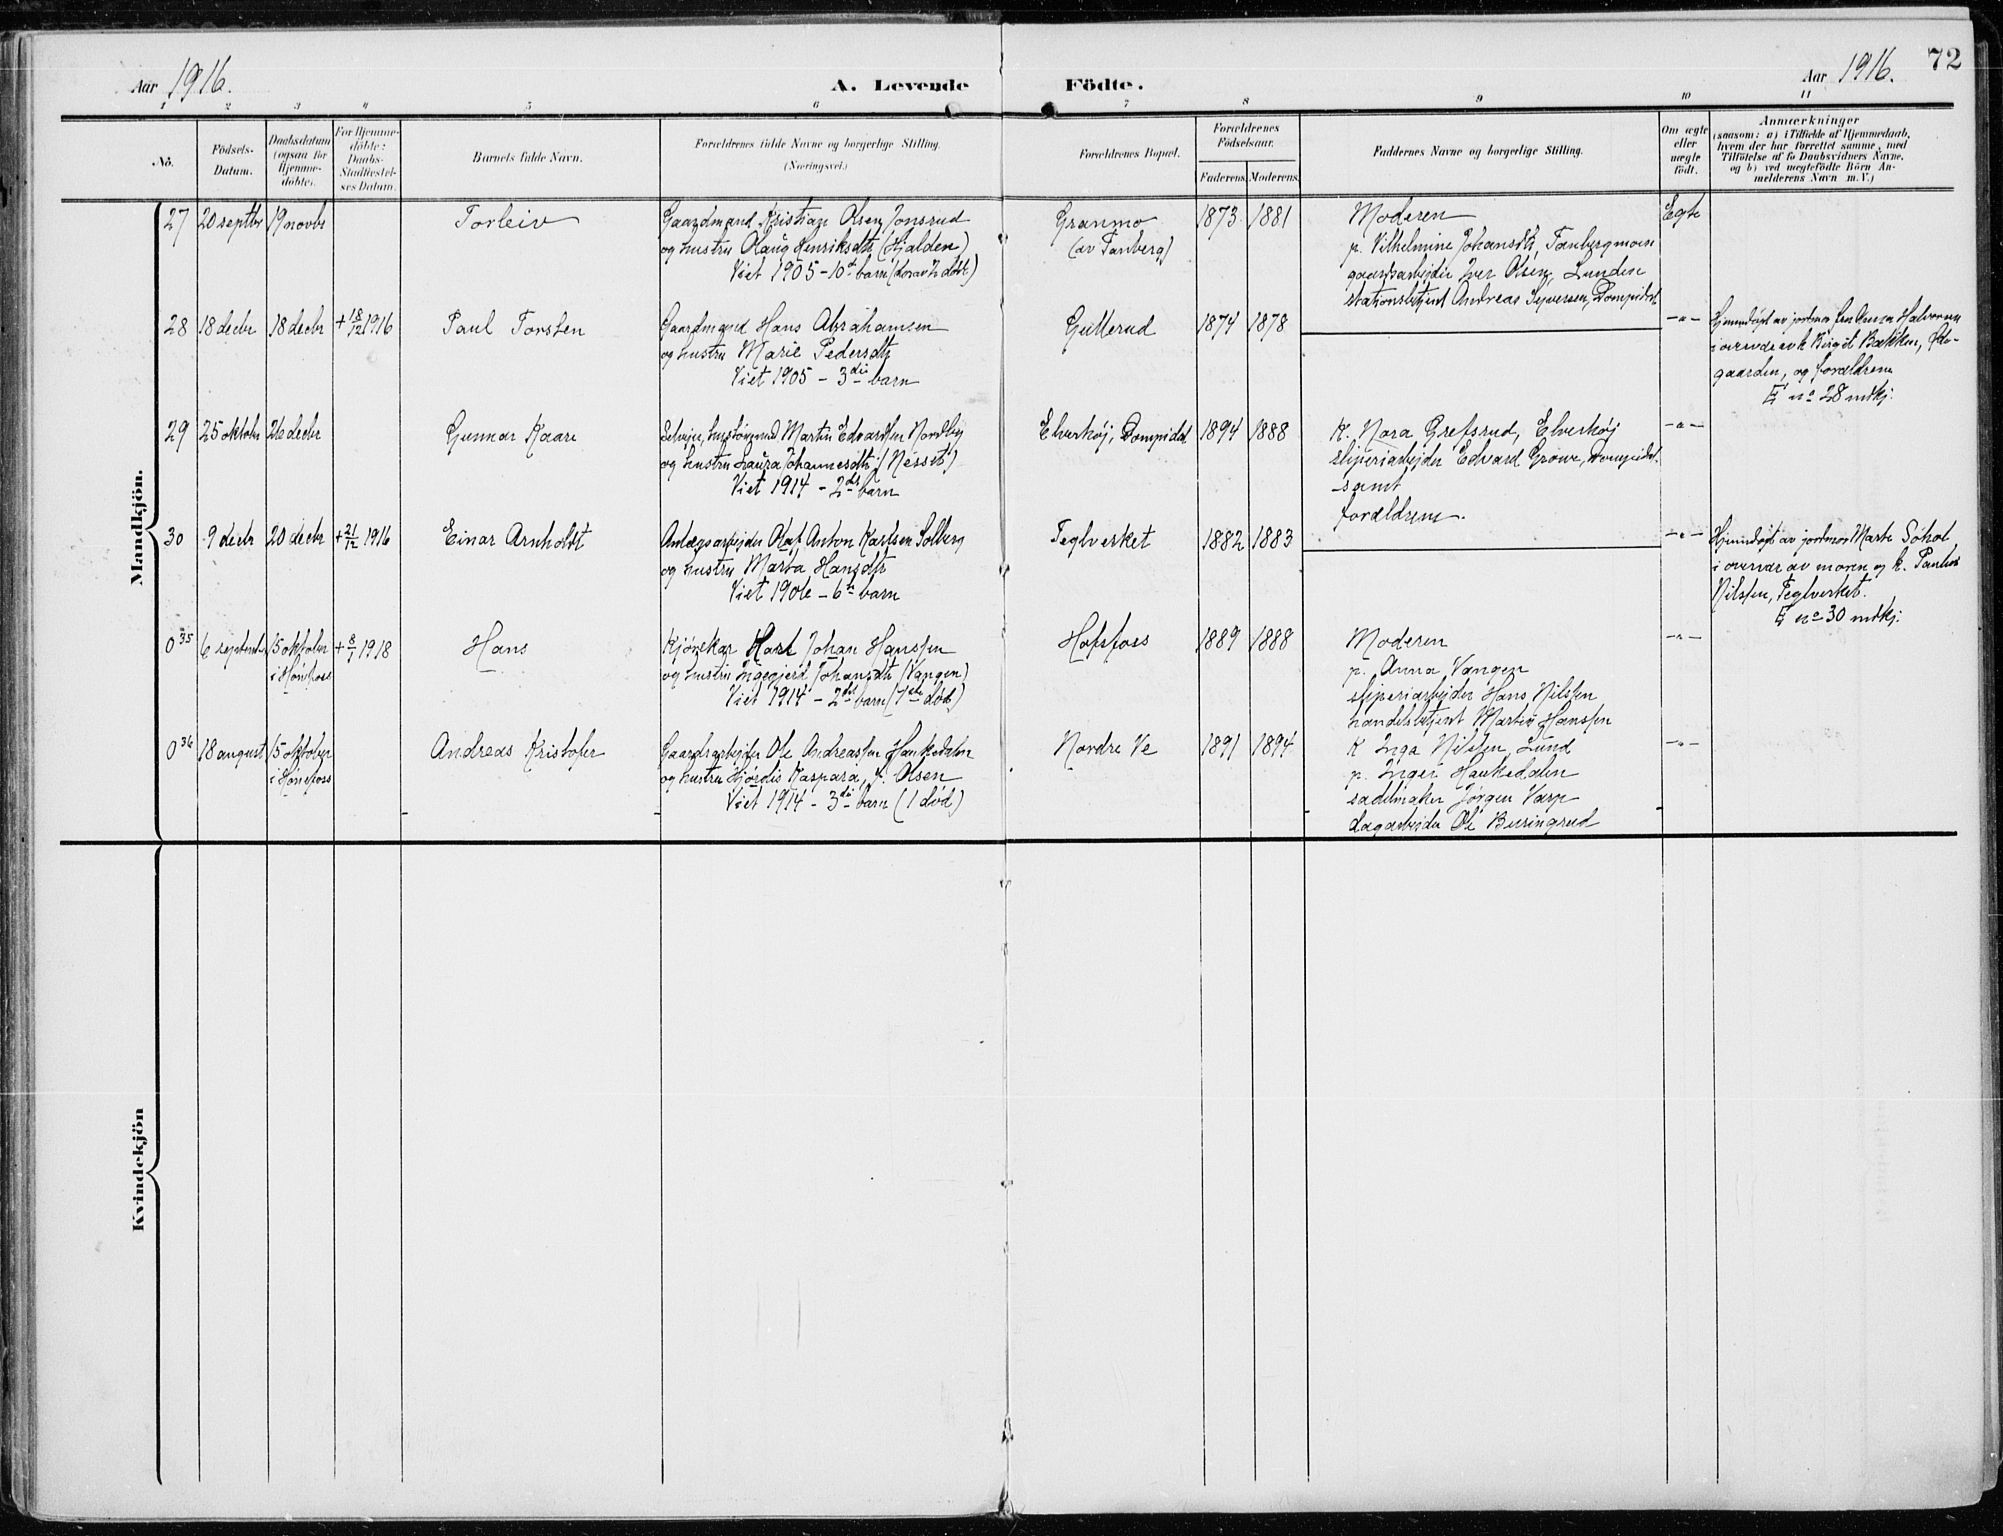 Aar 1916.
A. Levende Födte.
Aar 1916.
72
1 2 3 4 5 6 7 8 9 10 11
No.
Födsels-
Datum.
Daabsdatum
(ogsaa for
Hjemme-
döbte).
For Hjemme-
döbte:
Daabs-
Stadfæstel-
ses Datum.
Barnets fulde Navn.
Forældrenes fulde Navne og borgerlige Stilling.
(Næringsvei.)
Forældrenes Bopæl.
Forældrenes
Födselsaar.
Faderens. Moderens.
Faddernes Navne og borgerlige Stilling.
Om ægte
eller
uægte
födt.
Anmærkninger
(saasom: a) i Tilfælde af Hjemmedaab,
hvem der har forrettet samme, med
Tilföielse af to Daabsvidners Navne,
og b) ved uægtefödte Börn An-
melderens Navn m. V.)
Mandkjön.
27 20 septbr 19 novbr Torleiv
Gaardmand Kristian Olsen Jonsrud
og hustru Olaug Henriksdtr (Hjalden)
Viet 1905 - 10de barn (
Granmo
(av Tanberg)
1873 1881
Moderen
p. Vilhelmine Johansdtr, Tanbergmoen
gaardsarbejder Iver Olsen, Lunden
stationsbetjent Andreas Syversen,
Egte
28 18 decbr 18 decbr + 18/12 1916 Paul Torsten
Gaardmand Hans Abrahamsen
og hustru Marie Pedersdtr
Viet 1905 - 3die barn
Gullerud
1874 1878
-"-
Hjemmedøpt av jordmor fru Anna Halvorsen
Birgit Bakken,
gaarden, og forældrene
E no 28 mdkj.
29 25 oktobr 26 decbr Gunnar Kaare
Martin Edvardsen Nordby
og hustru Laura Johannesdtr (Nesset)
Viet 1914 - 2det barn
Elverhøj,
1894 1888
k. Nora Grefsrud, Elverhøj
sliperiarbejder Edvard
samt
forældrene.
-"-
30 9 decbr 20 decbr + 21/12 1916 Einar Arnholdt
Anlægsarbejder Olaf Anton Karlsen Solberg
og hustru Marta Hansdtr
Viet 1906 - 6te barn
Teglverket
1882 1883
-"-
Hjemmedøpt av jordmor Marte Sohol
i overvær av moren og k.
Nilsen, Teglverket.
E no 30 mdkj.
0 35 6 septembr 15 oktober
i Hønefoss
+ 8/1 1918 Hans
Kjørekar Karl Johan Hanssen
og hustru Ingegjerd Johansdtr (Vangen)
Viet 1914 - 2det barn (1ste død)
Hofsfoss
1889 1888
Moderen
p. Anna Vangen
sliperiarbejder Hans Nilsen
handelsbetjent Martin Hanssen
-"-
0 36 18 august 15 oktober
i Hønefoss
Andreas Kristofer
Gaardsarbejder Ole Andreassen Haukedalen
og hustru Hjørdis Kaspara, f. Olsen
Viet 1914 - 3die barn (1 død)
Nordre Ve
1891 1894
K Inga Nilsen, Lund
p. Inger Haukedalen
sadelmaker Jørgen Varp
dagarbejder Ole Buringrud
-"-
Kvindekjön